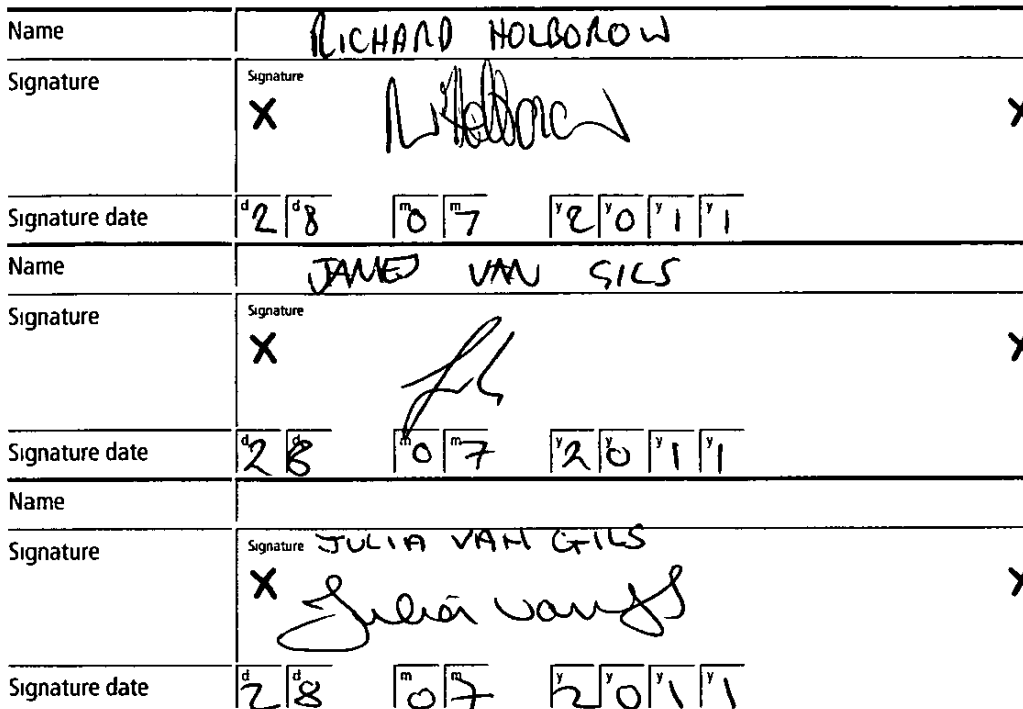 Name RICHARD HOLBOROW
Signature Signature
X R Holborow X
Signature date d2 d8 m0 m7 y2 y0 y1 y1
Name JAMES VAN GILS
Signature Signature
X X
Signature date d2 d8 m0 m7 y2 y0 y1 y1
Name
Signature Signature JULIA VAN GILS
X Julia van Gils X
Signature date d2 d8 m0 m7 y2 y0 y1 y1